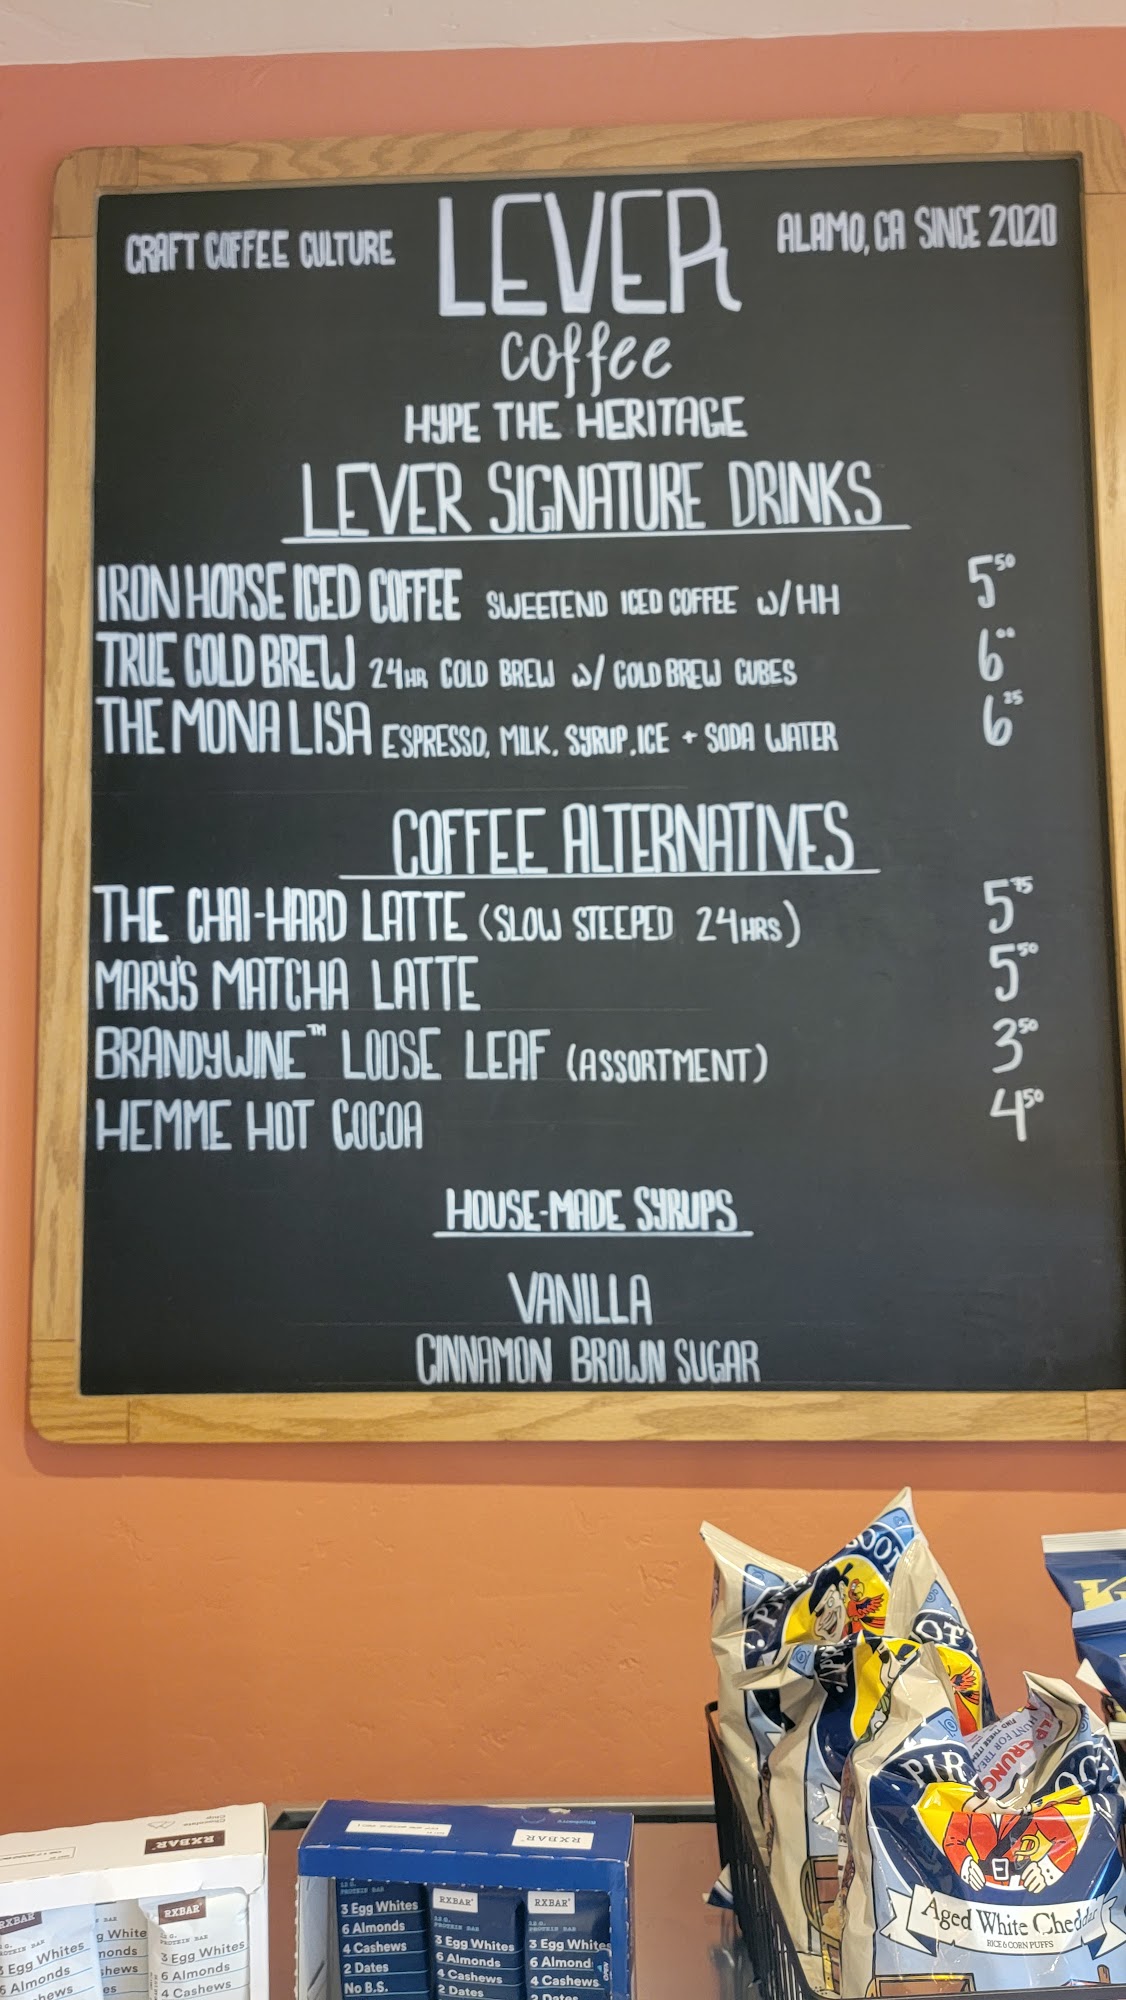 CRAFT COFFEE CULTURE
LEVER
ALAMO, CA SINCE 2020
coffee
HYPE THE HERITAGE
LEVER SIGNATURE DRINKS
IRON HORSE ICED COFFEE SWEETEND ICED COFFEE w/HH 5 50
TRUE COLD BREW 24HR COLD BREW w/ COLD BREW CUBES 6 00
THE MONA LISA ESPRESSO, MILK, SYRUP, ICE + SODA WATER 6 25
COFFEE ALTERNATIVES
THE CHAI-HARD LATTE (SLOW STEEPED 24HRS) 5 75
MARY'S MATCHA LATTE 5 50
BRANDYWINE™ LOOSE LEAF (ASSORTMENT) 3 50
HEMME HOT COCOA 4 50
HOUSE-MADE SYRUPS
VANILLA
CINNAMON BROWN SUGAR
Aged White Cheddar
RICE & CORN PUFFS
Chocolate
Chip
RXBAR
RXBAR
RXBAR
3 Egg Whites
6 Almonds
4 Cashews
Blueberry
RXBAR
12 G.
PROTEIN BAR
3 Egg Whites
6 Almonds
4 Cashews
2 Dates
No B.S.
RXBAR
3 Egg Whites
6 Almonds
4 Cashews
2 Dates
RXBAR
3 Egg Whites
6 Almond
4 Cashews
2 Dates